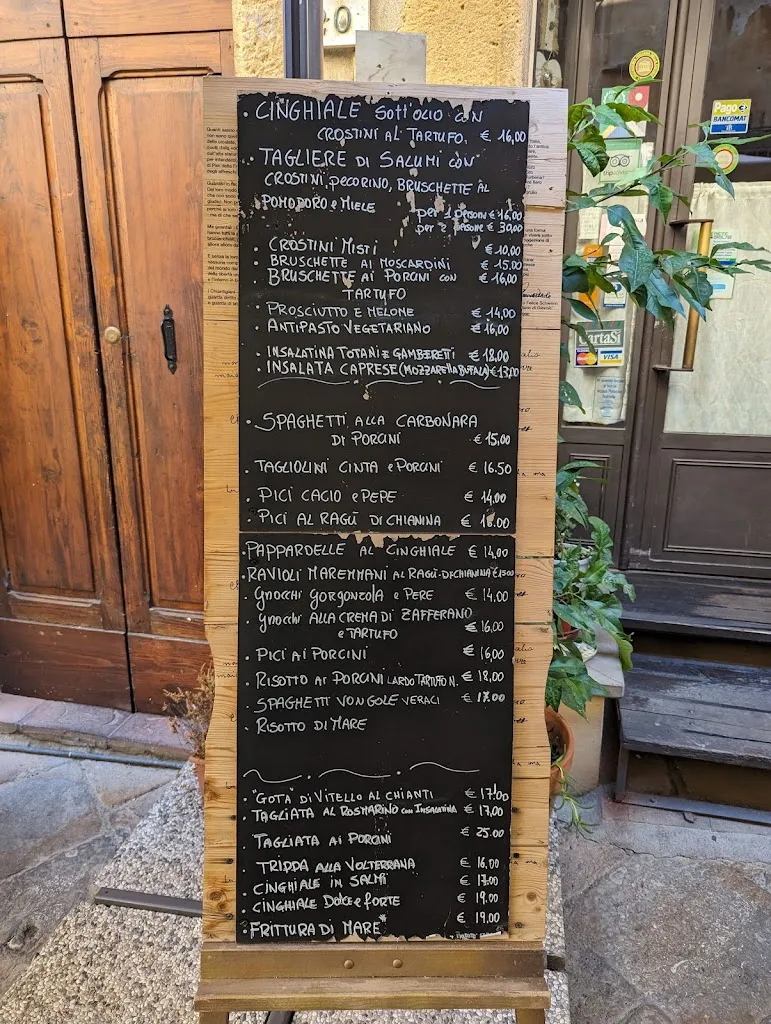 · CINGHIALE Sott'olio con
CROSTINI AL TARTUFO. € 16,00
· TAGLIERE DI SALUMI CON
CROSTINI, PECORINO, BRUSCHETTE AL
POMODORO e MIELE
per 1 persona € 16,00
per 2 persone € 30,00
· CROSTINI MISTI € 10,00
· BRUSCHETTE AI MOSCARDINI € 15.00
· BRUSCHETTE AI PORCINI con € 16,00
TARTUFO
· PROSCIUTTO E MELONE € 14,00
· ANTIPASTO VEGETARIANO € 16,00
· INSALATINA TOTANI E GAMBERETTI € 18.00
· INSALATA CAPRESE (MOZZARELLA BUFALA) € 13,00
· SPAGHETTI ALLA CARBONARA
DI PORCINI € 15,00
· TAGLIOLINI CINTA e PORCINI € 16.50
· PICI CACIO e PEPE € 14.00
· PICI AL RAGÙ DI CHIANINA
· PAPPARDELLE AL CINGHIALE € 14,00
· RAVIOLI MAREMMANI AL RAGÙ DI CHIANINA € 15.00
· GNOCCHI GORGONZOLA e PERE € 14.00
· GNOCCHI ALLA CREMA DI ZAFFERANO
e TARTUFO € 16,00
· PICI AI PORCINI € 16,00
· RISOTTO AI PORCINI LARDO TARTUFO N. € 18,00
· SPAGHETTI VONGOLE VERACI € 17.00
· RISOTTO DI MARE
· "GOTA" DI VITELLO AL CHIANTI € 17.00
· TAGLIATA AL ROSMARINO con INSALATINA € 17,00
· TAGLIATA AI PORCINI € 25.00
· TRIPPA ALLA VOLTERRANA € 16.00
· CINGHIALE IN SALMÌ € 17.00
· CINGHIALE DOLCE e FORTE € 19.00
· FRITTURA DI MARE* € 19.00
Pago
BANCOMAT
CartaSi
VISA